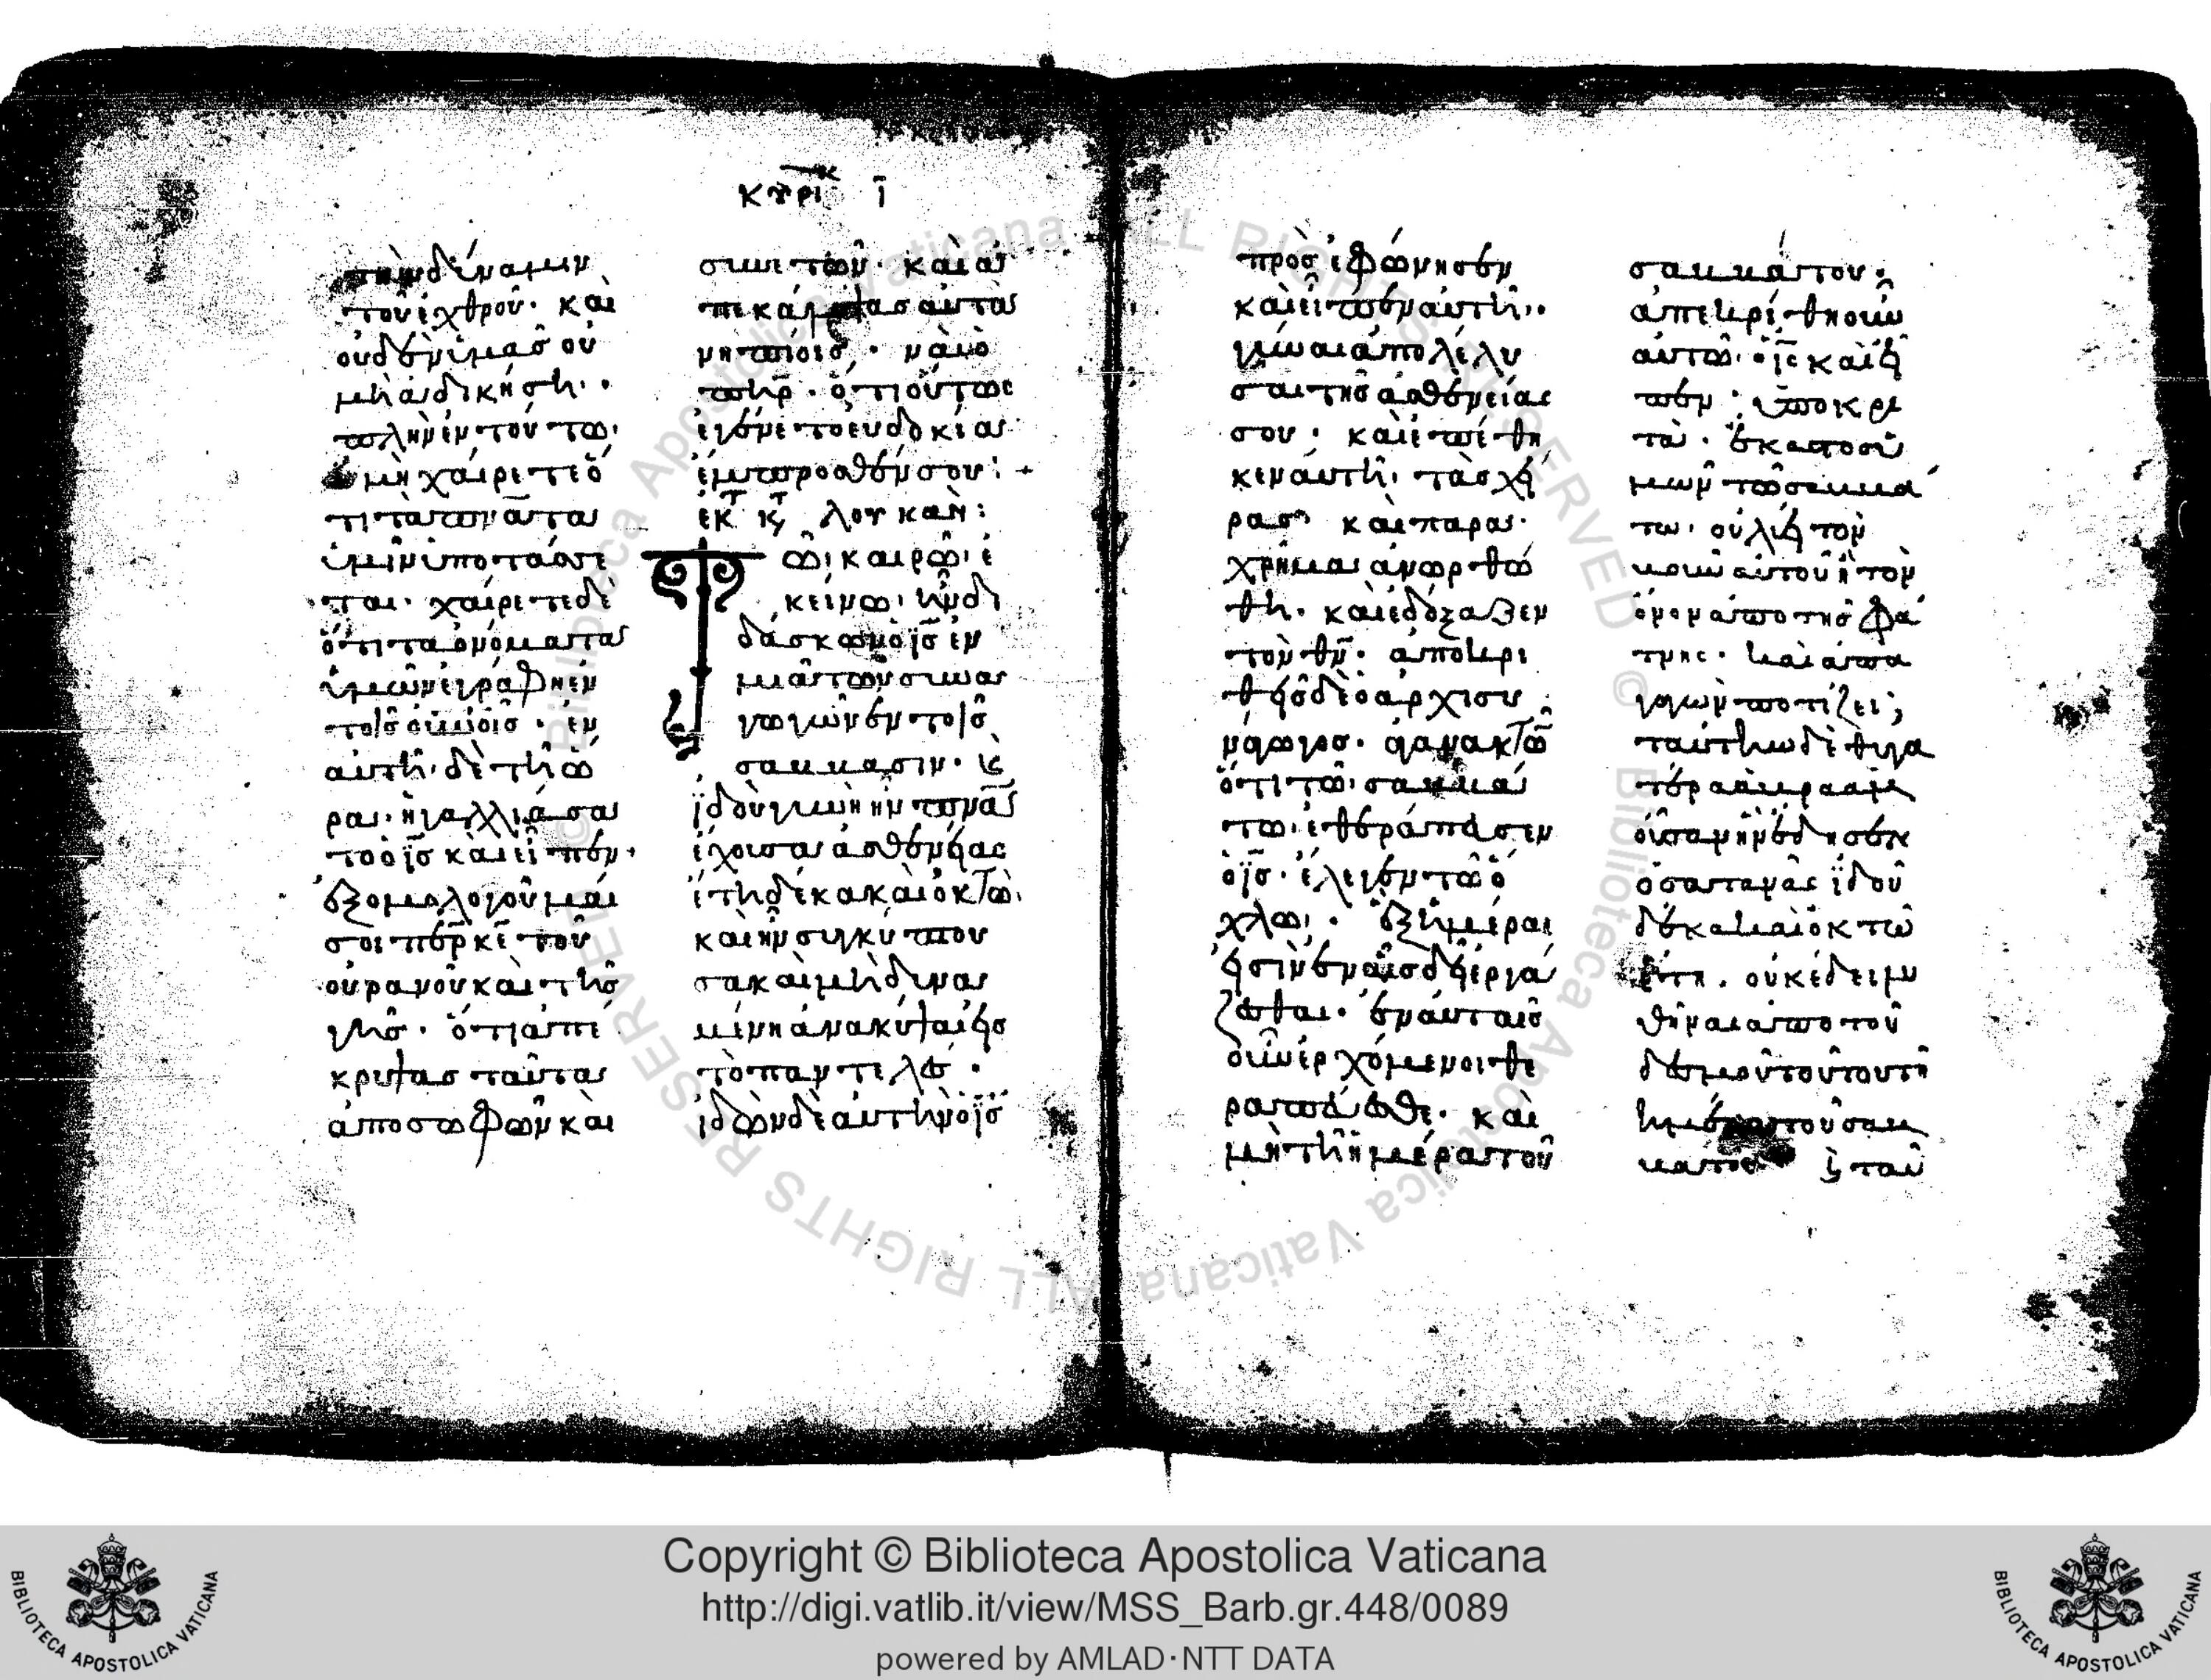 κυριακ ι
τηνδύναμιν
τοῦἐχθροῦ· καὶ
οὐδὲνὑμᾶσοὐ
μὴἀδικήσῃ·
πλὴνἐντούτω·
μὴχαίρετεὅ
τιτὰπνᾶτα
ὑμῖνὑποτάσσε
ται· χαίρετεδὲ
ὅτιταὀνόματα
ὑμῶνἐγράφηἐν
τοῖσοὐνοῖσ· ἐν
αὐτῆ·δὲτῆὥ
ρα·ἠγαλλιάσα
τοὁἰσκαὶεἶπεν·
ἐξομολογοῦμαί
σοιπερκε τοῦ
οὐρανοῦκαὶτῆσ
γῆσ· ὅτιἀπέ
κρυψασταῦτα
ἀποσοφῶνκαὶ
συνετῶν· καὶἀ
πεκάλυψασαὐτὰ
νηπίοισ· ναὶὁ
πηρ· ὅτιοὕτωσ
ἐγένετοεὐδοκία
ἔμπροσθένσου: +
ἐκ τ κτ λουκὰν:
Τῶ·καιρῶ·ἐ
κείνω· ἦνδι
δάσκωνὁισἐν
μιᾶτῶνσυνα
γωγῶνἐντοῖσ
σαββασιν· κ
ἰδοὺγυνὴἦνπνᾶ
ἔχουσαἀσθενείασ
ἔτηδέκακαὶὀκτώ·
καὶἦνσυγκύπτου
σακαὶμὴδυνα
μένηἀνακύψαιεἰσ
τὸπαντελὲσ·
ἰδὼνδὲαὐτὴνὁισ
προσἐφώνησεν
καὶεἶπεναὐτῆ··
γύναιἀπολέλυ
σαιτῆσἀσθενείασ
σου· καὶἐπέθη
κεναὐτῆ· τὰσχεῖ
ρασ καὶπαρα
χρῆμαἀνωρθώ
θη· καὶἐδόξαζεν
τὸνθν· ἀποκρι
θεὶσδὲὁἀρχισυ
νάγωγοσ· ἀγανακτῶ
ὅτιτῶ·σαββά
τω·ἐθεράπευσεν
ὁισ· ἔλεγεντῶὄ
χλω· ἓξἡμέραι
εἰσὶνἐναἷσδεῖἐργά
ζεσθαι· ἐναὐταῖσ
οὖνἐρχόμενοιθε
ραπεύεσθε· καὶ
μὴτῆἡμέρατοῦ
σαββάτου·
ἀπεκρίθηοὖν
αὐτῶ·ὁισκαὶεἶ
πεν· ὑποκρι
τὰ· ἕκαστοσὑ
μῶντῶσαββά
τω· οὐλύειτὸν
βοῦναὐτοῦἢτὸν
ὄνοναποτησφά
τνησ· καὶἀπα
γαγὼνποτίζει;
ταύτηνδὲθυγα
τέρααβρααμ
οὖσανἣνἔδησεν
ὁσατανᾶσἰδοῦ
δέκακαὶὀκτὼ
ἔτη· οὐκἔδειλυ
θῆναιἀποτοῦ
δεσμοῦτούτουτῆ
ἡμέρατοῦσαβ
βάτου ϗταῦ
Copyright © Biblioteca Apostolica Vaticana
http://digi.vatlib.it/view/MSS_Barb.gr.448/0089
powered by AMLAD·NTT DATA
BIBLIOTECA APOSTOLICA VATICANA
BIBLIOTECA APOSTOLICA VATICANA